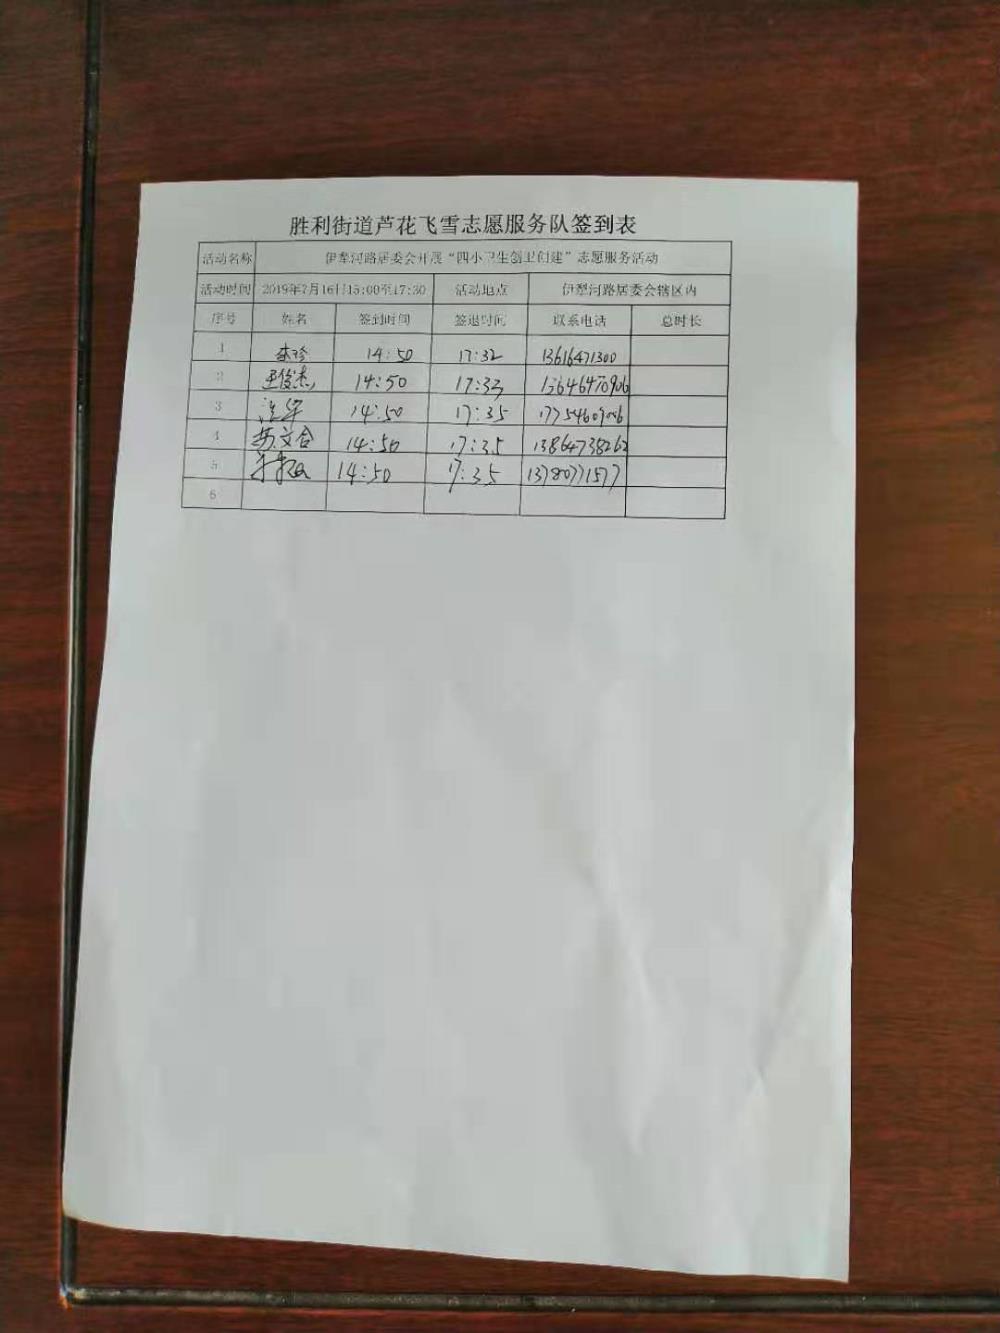 胜利街道芦花飞雪志愿服务队签到表
活动名称 伊犁河路居委会开展“四小卫生创卫创建”志愿服务活动
活动时间 2019年7月16日15:00至17:30 活动地点 伊犁河路居委会辖区内
序号 姓名 签到时间 签退时间 联系电话 总时长
1 李珍 14:50 17:32 13616471300
2 王俊杰 14:50 17:33 13646470906
3 14:50 17:35
4 苏文合 14:50 17:35 13864738262
5 14:50 17:35 13780771577
6